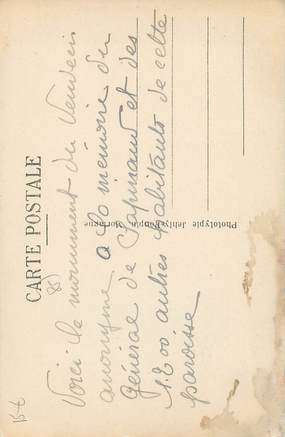 CARTE POSTALE
85)
Voici le monument du Vendéen
anonyme à la mémoire du
général de Sapinaud et des
1200 autres habitants de cette
paroisse
Phototypie Mortagne